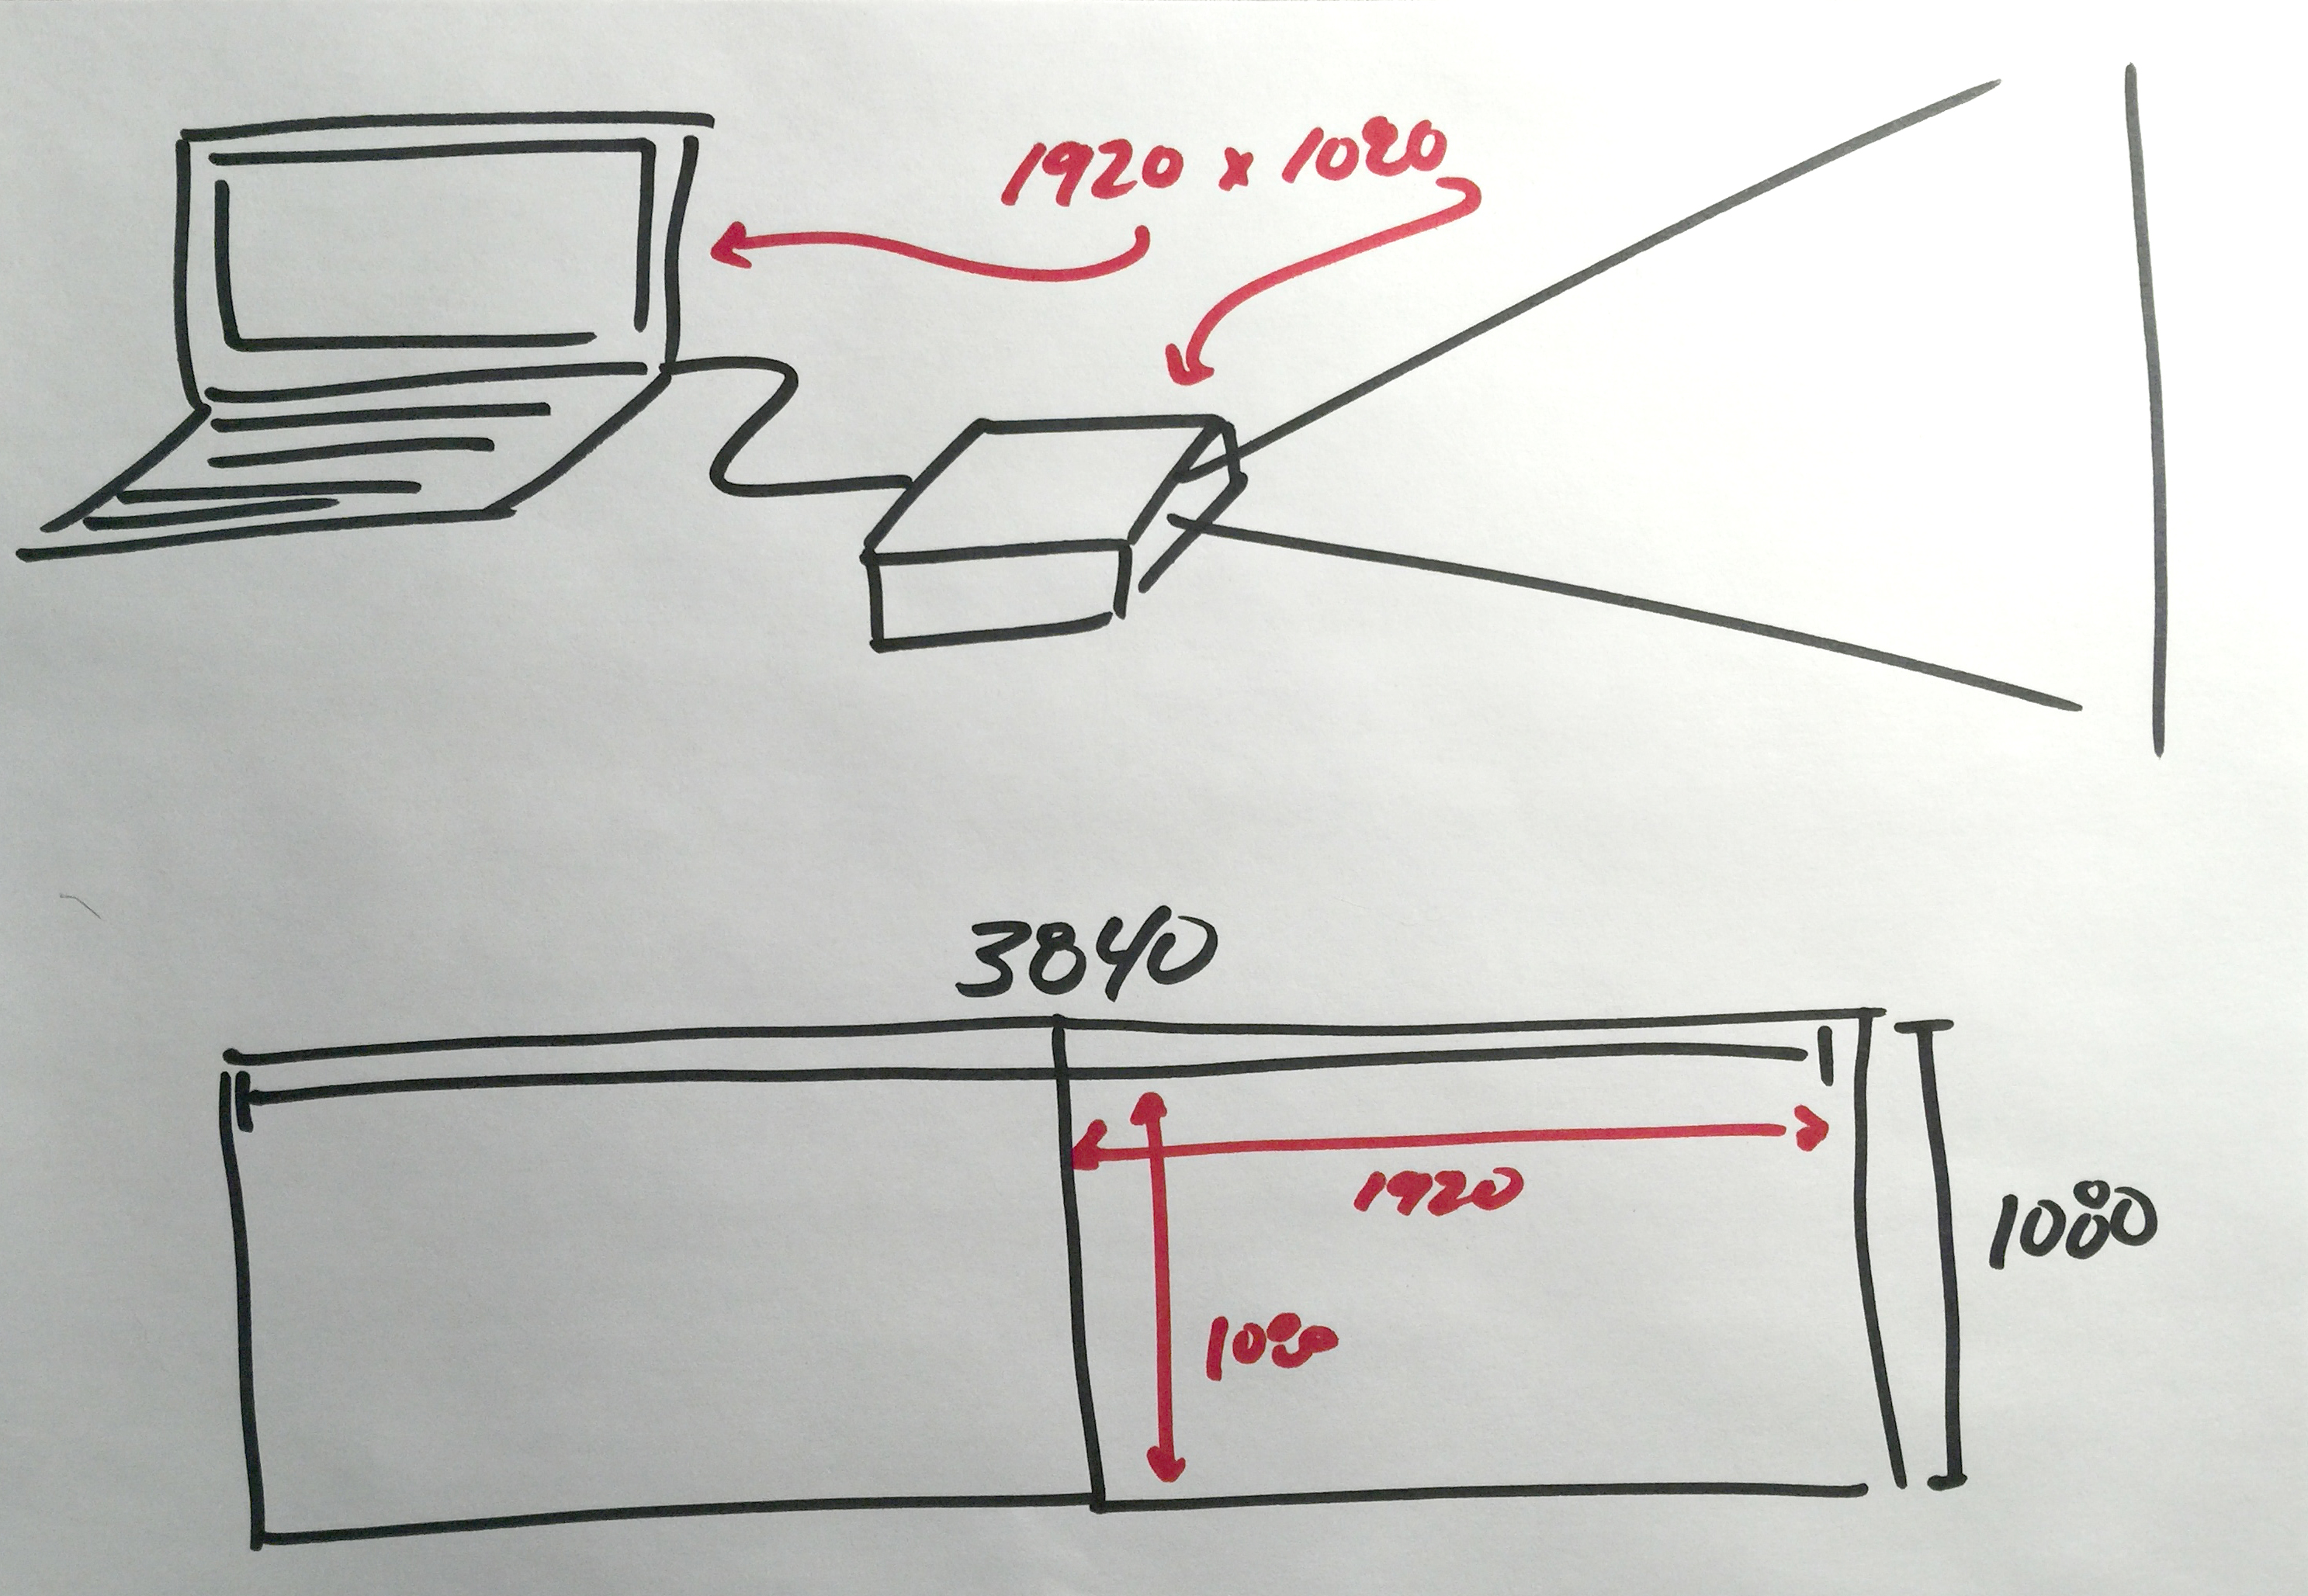 1920 x 1080
3840
1920
1080
1080